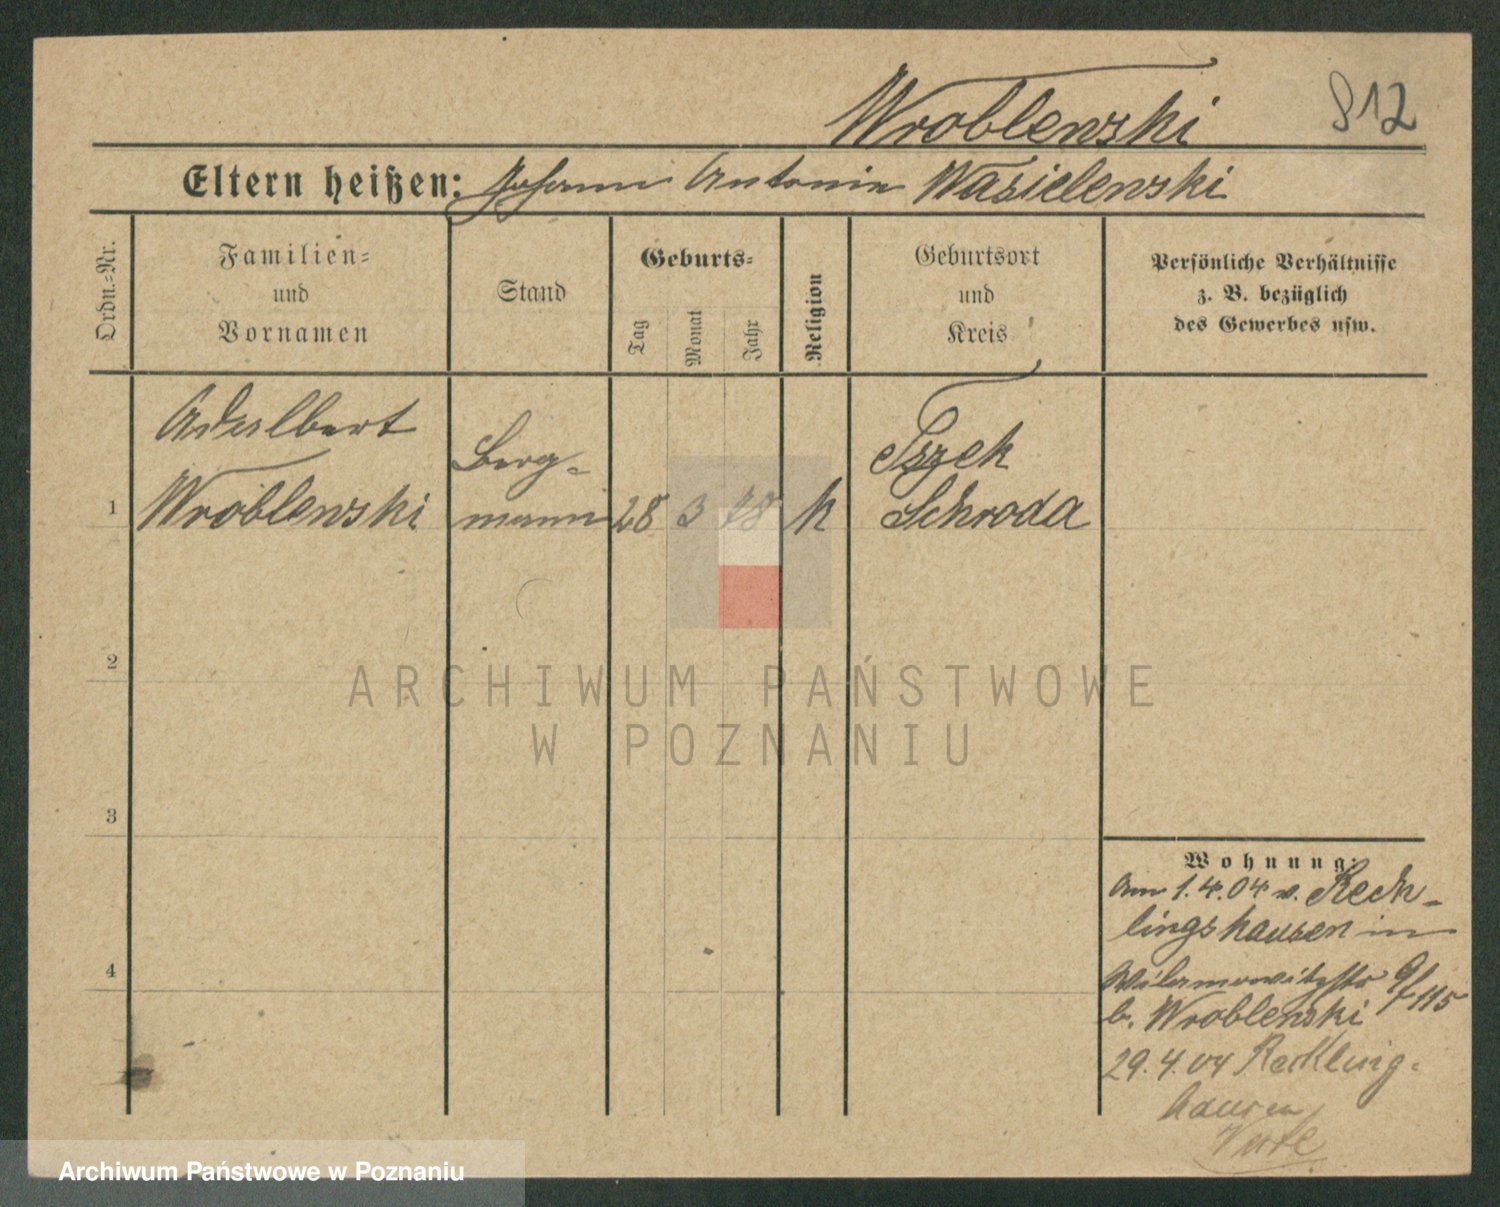 Wroblewski
812
Eltern heißen: Johann Antonie Wasielewski
Ordn.=Nr.
Familien=
und
Vornamen
Stand
Geburts=
Tag
Monat
Jahr
Religion
Geburtsort
und
Kreis
Persönliche Verhältnisse
z. B. bezüglich
des Gewerbes usw.
1
Adalbert
Wroblewski
Berg=
mann
28 3 78
k
Tszek
Schroda
2
3
4
Wohnung:
Am 1.4.04 v. Reck-
lingshausen in
b. Wroblewski 9/115
29.4.04 Reckling-
hausen
ARCHIWUM PAŃSTWOWE
W POZNANIU
Archiwum Państwowe w Poznaniu